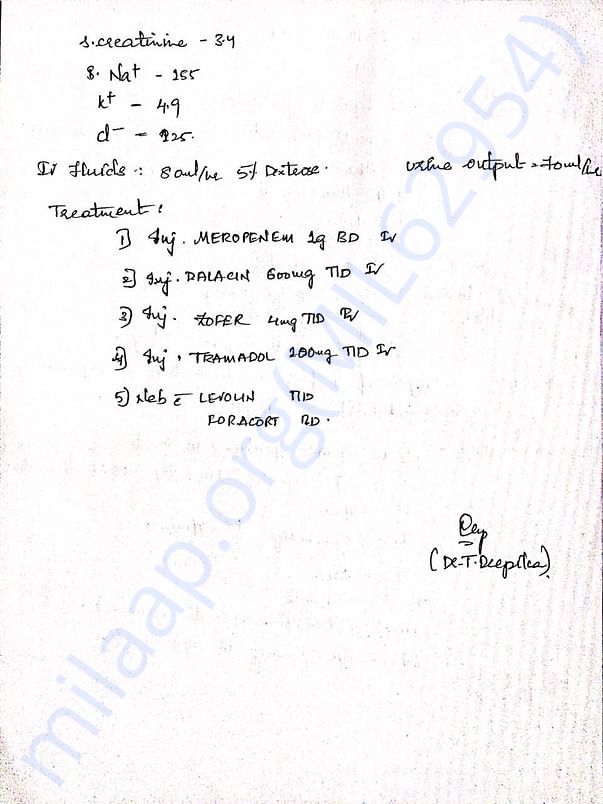 S. creatinine - 3.4
S. Na+ - 155
K+ - 4.9
Cl- = 125.
IV fluids : 80ml/hr 5% Dextrose. Urine output = 70ml/hr
Treatment :
1) Inj. MEROPENEM 1g BD IV
2) Inj. DALACIN 600mg TID IV
3) Inj. ZOFER 4mg TID IV
4) Inj. TRAMADOL 100mg TID IV
5) Neb c̄ LEVOLIN TID
FORACORT BD.
(Dr. T. Deepika)
milaap.org(MIL62954)